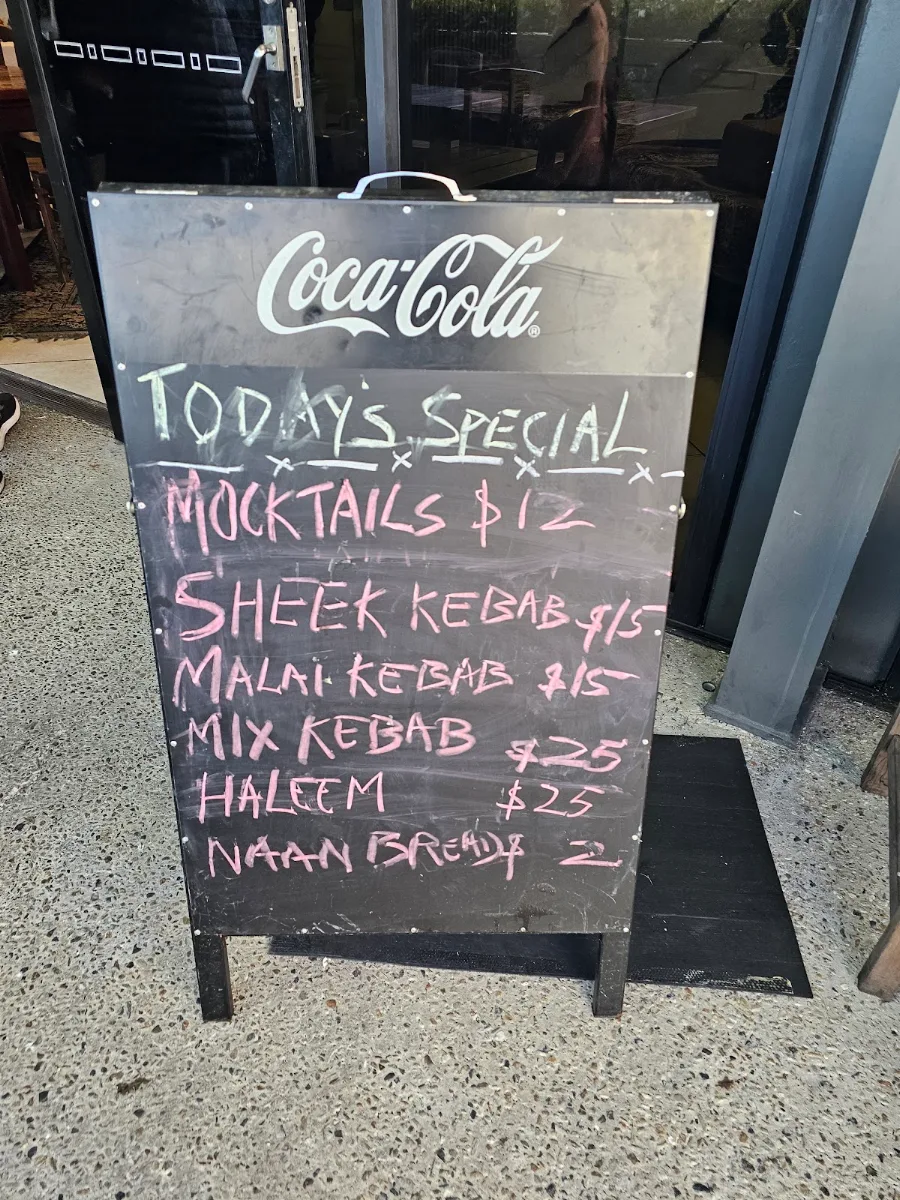 Coca-Cola®
TODAY'S SPECIAL
MOCKTAILS $12
SHEEK KEBAB $15
MALAI KEBAB $15
MIX KEBAB $25
HALEEM $25
NAAN BREAD$ 2